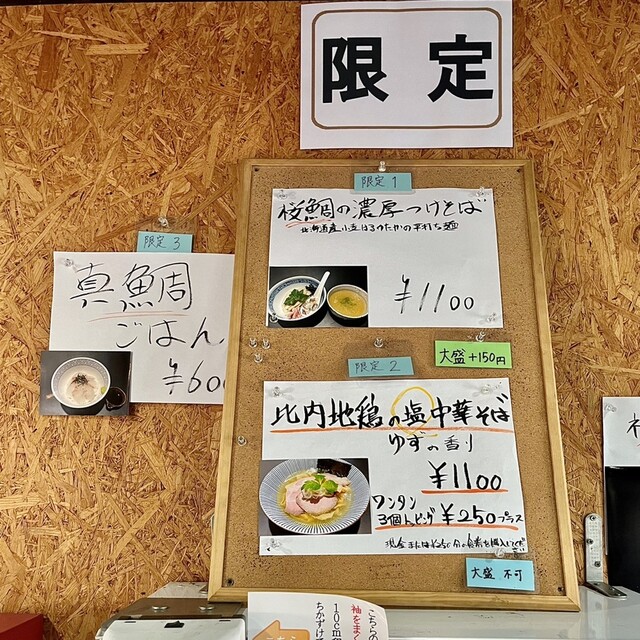 限定
限定1
桜鯛の濃厚つけそば
北海道産小麦はるゆたかの平打ち麺
¥1100
大盛+150円
限定3
真鯛
ごはん
¥600
限定2
比内地鶏の塩中華そば
ゆずの香り
¥1100
ワンタン
3個トッピング ¥250プラス
大盛 不可
こちらの
袖をまく
10cm
ちかずけ